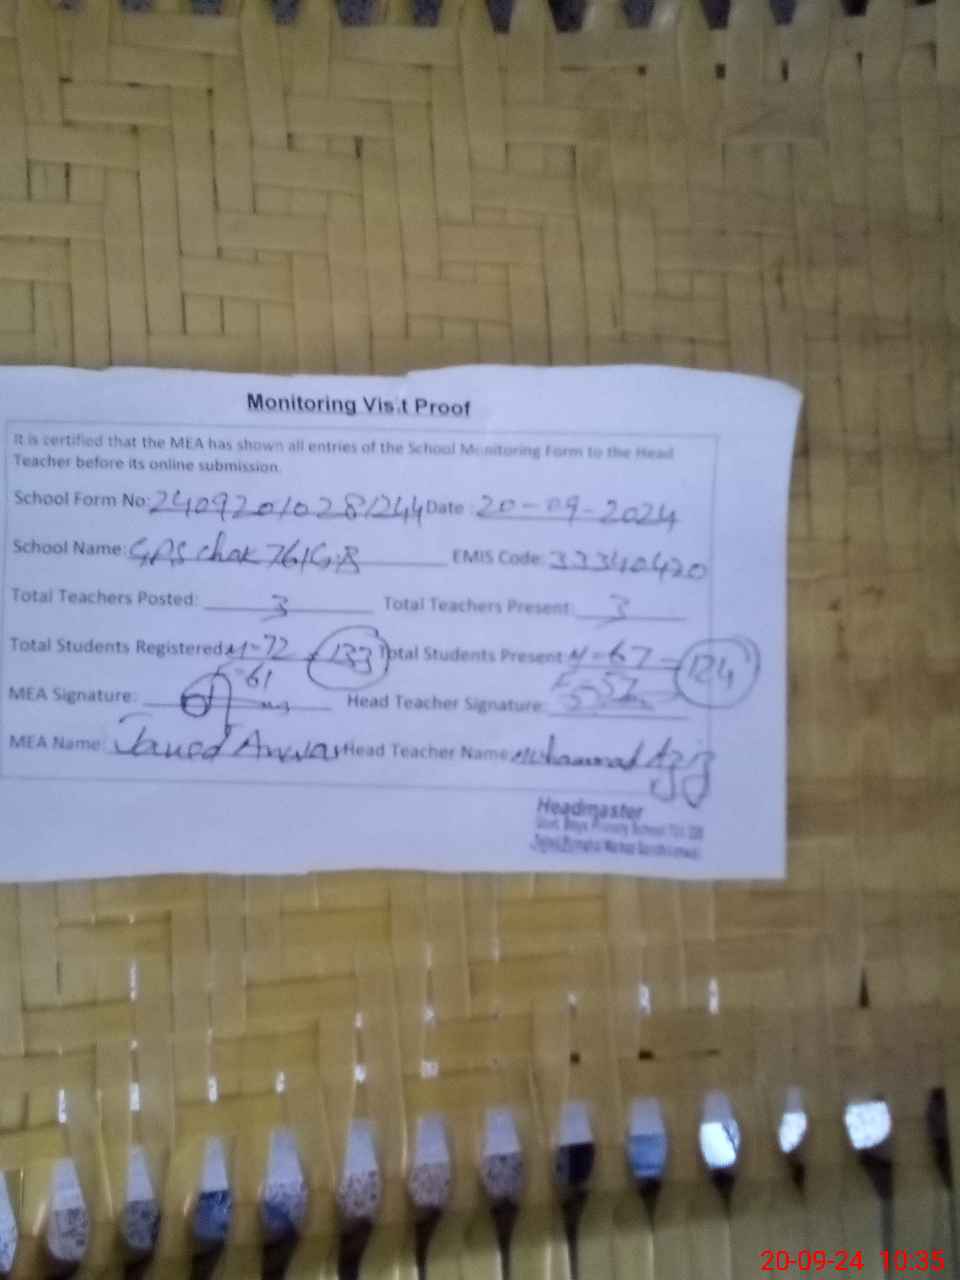 Monitoring Visit Proof
It is certified that the MEA has shown all entries of the School Monitoring Form to the Head
Teacher before its online submission.
School Form No: 24092010281244 Date: 20-09-2024
School Name: GPS chak 761GB EMIS Code: 33340420
Total Teachers Posted: 3 Total Teachers Present: 3
Total Students Registered M-72 133 Total Students Present M-67 124
-61
MEA Signature: Head Teacher Signature:
MEA Name: Javed Anwar Head Teacher Name Mohammad Aziz
Headmaster
Govt. Boys Primary School
20-09-24 10:35